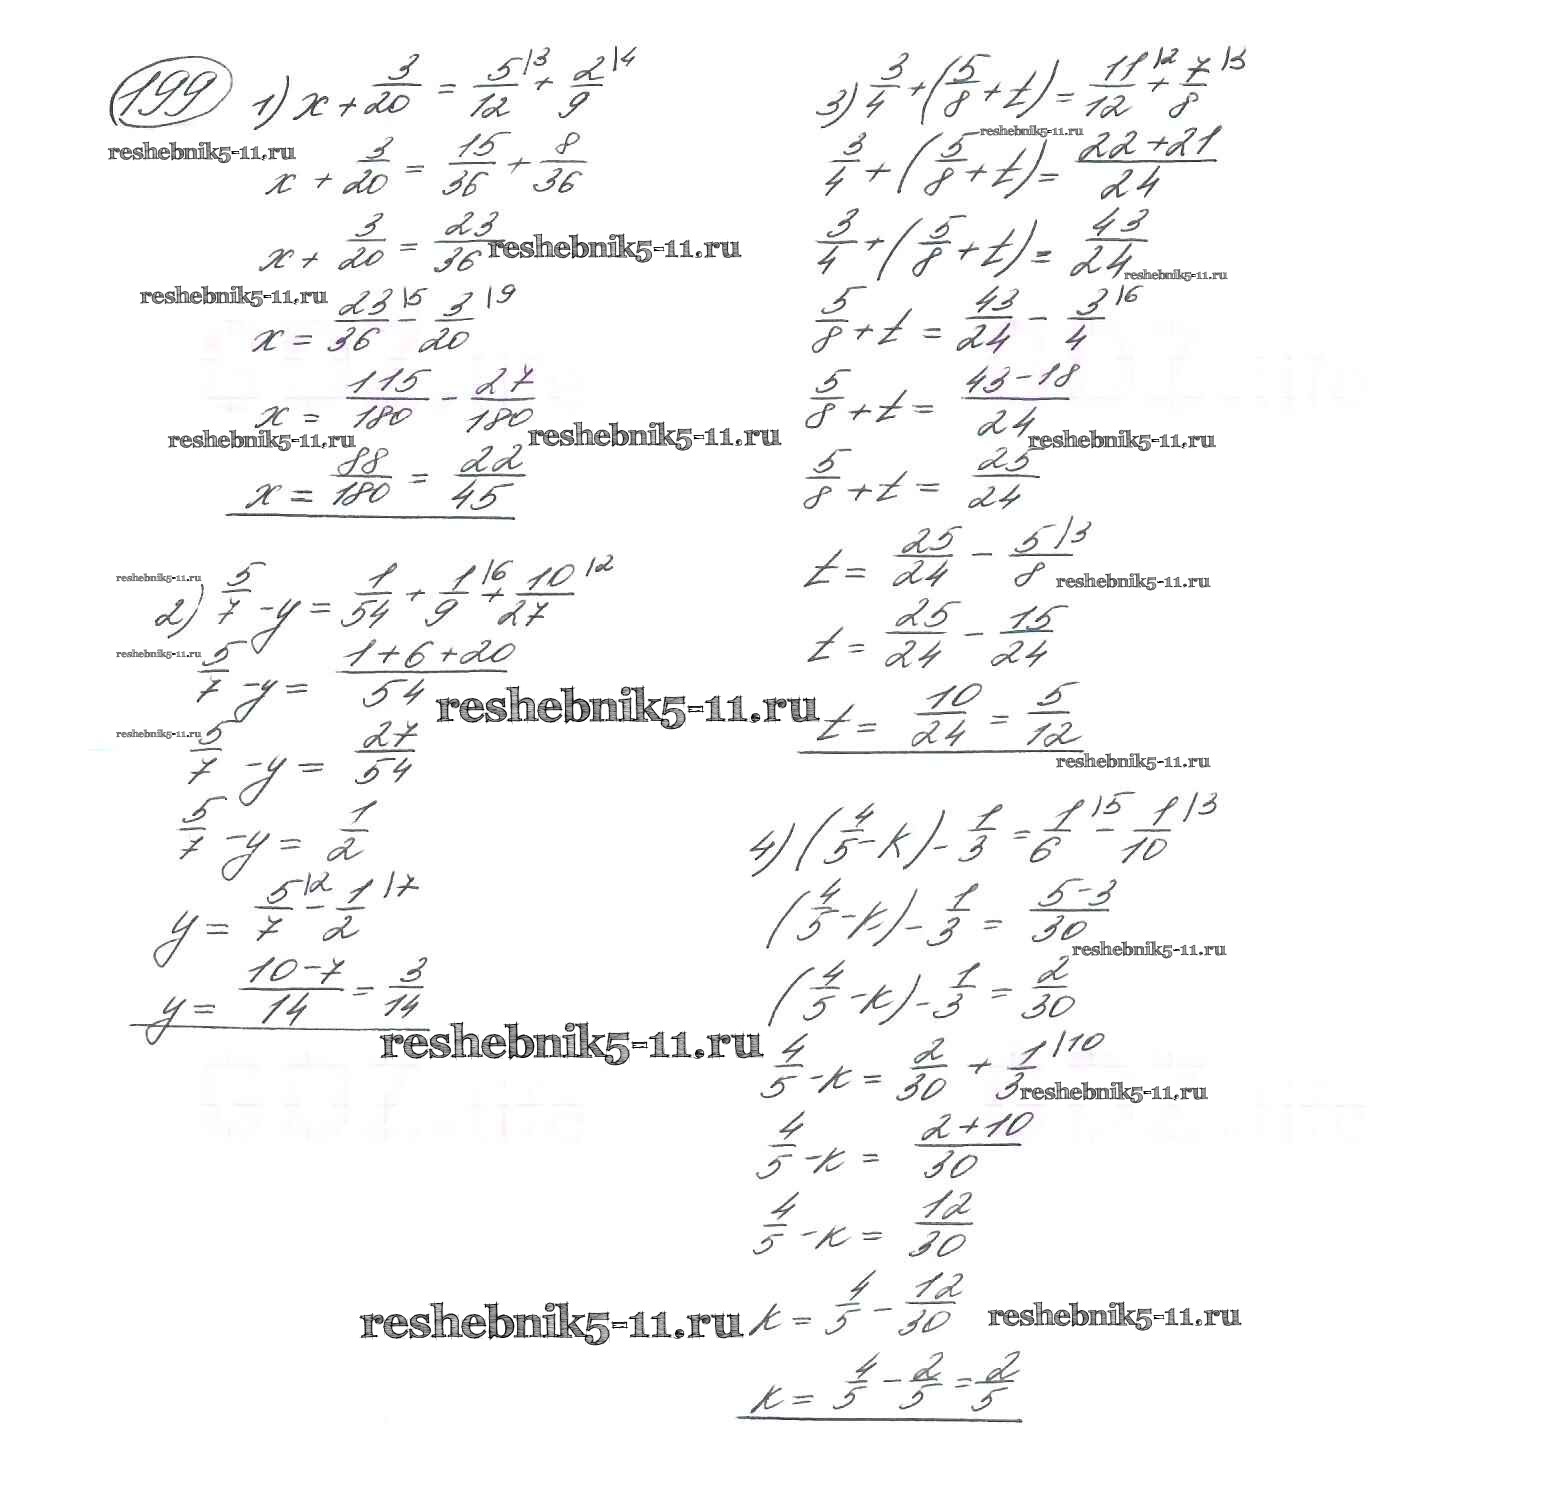 199 1) x + 3/20 = 5/12 |3 + 2/9 |4
reshebnik5-11.ru
x + 3/20 = 15/36 + 8/36
x + 3/20 = 23/36
reshebnik5-11.ru
reshebnik5-11.ru
x = 23/36 |5 - 3/20 |9
x = 115/180 - 27/180
reshebnik5-11.ru
reshebnik5-11.ru
x = 88/180 = 22/45
reshebnik5-11.ru
2) 5/7 - y = 1/54 + 1/9 |6 + 10/27 |2
reshebnik5-11.ru
5/7 - y = (1+6+20)/54
reshebnik5-11.ru
reshebnik5-11.ru
5/7 - y = 27/54
5/7 - y = 1/2
y = 5/7 |2 - 1/2 |7
y = (10-7)/14 = 3/14
reshebnik5-11.ru
reshebnik5-11.ru
3) 3/4 + (5/8 + t) = 11/12 |2 + 7/8 |3
reshebnik5-11.ru
3/4 + (5/8 + t) = (22+21)/24
3/4 + (5/8 + t) = 43/24
reshebnik5-11.ru
5/8 + t = 43/24 - 3/4 |6
5/8 + t = (43-18)/24
reshebnik5-11.ru
5/8 + t = 25/24
t = 25/24 - 5/8 |3
reshebnik5-11.ru
t = 25/24 - 15/24
t = 10/24 = 5/12
reshebnik5-11.ru
4) (4/5 - k) - 1/3 = 1/6 |5 - 1/10 |3
(4/5 - k) - 1/3 = (5-3)/30
reshebnik5-11.ru
(4/5 - k) - 1/3 = 2/30
4/5 - k = 2/30 + 1/3 |10
reshebnik5-11.ru
4/5 - k = (2+10)/30
4/5 - k = 12/30
k = 4/5 - 12/30
reshebnik5-11.ru
k = 4/5 - 2/5 = 2/5